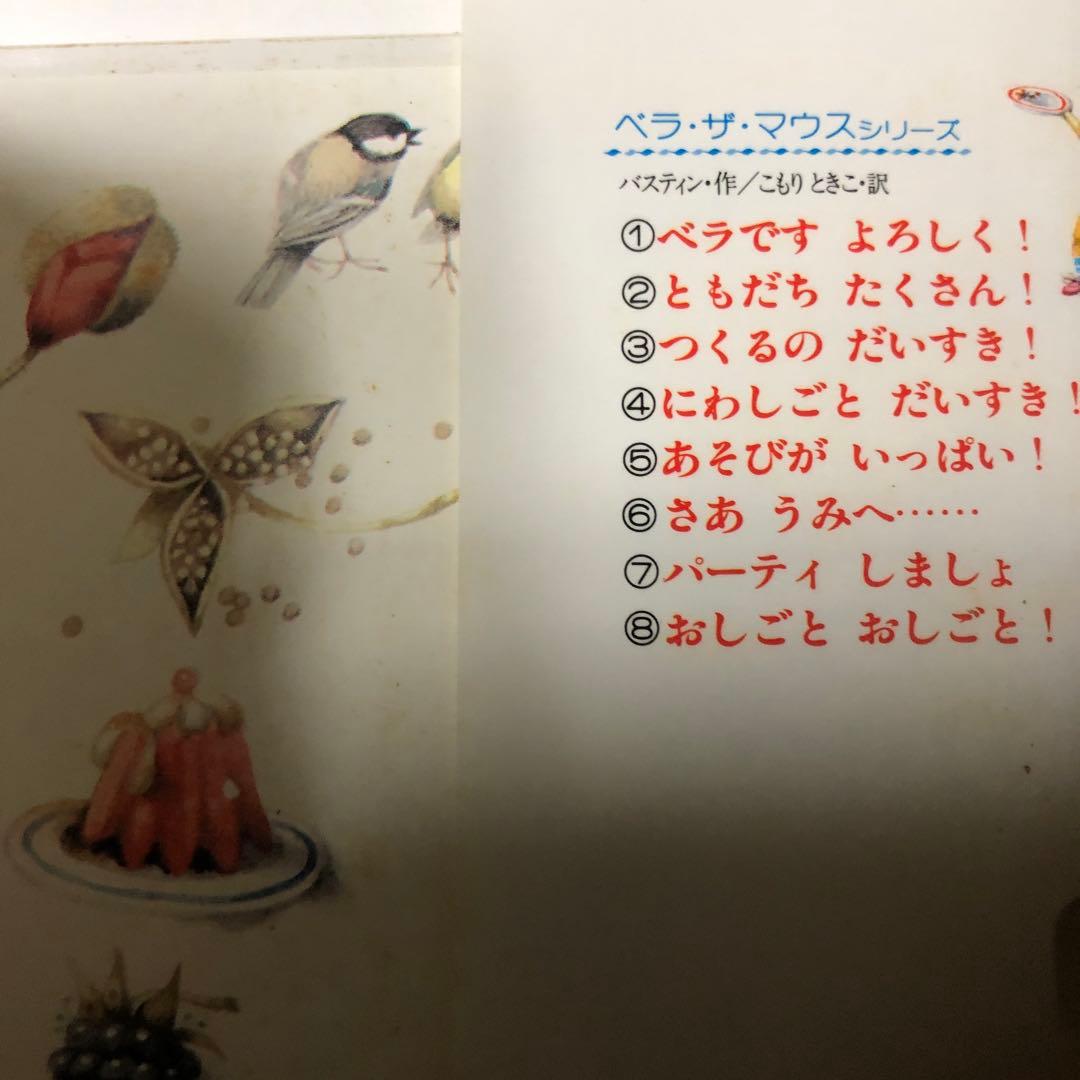 ベラ・ザ・マウスシリーズ
バスティン・作／こもり ときこ・訳
①ベラです よろしく！
②ともだち たくさん！
③つくるの だいすき！
④にわしごと だいすき！
⑤あそびが いっぱい！
⑥さあ うみへ……
⑦パーティ しましょ
⑧おしごと おしごと！